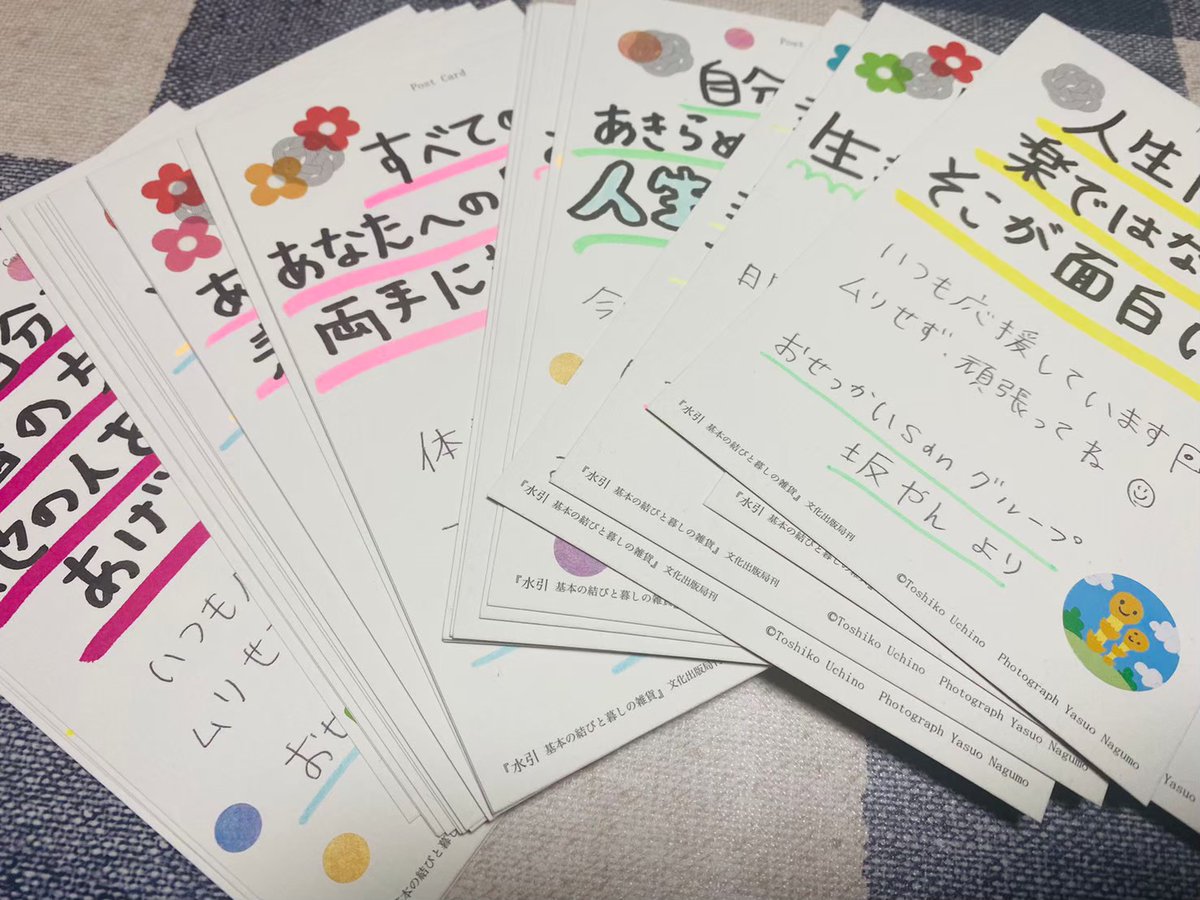 Post Card
すべての
あなたへの
両手に
体
『水引 基本の結びと暮しの雑貨』 文化出版局刊
自分
あきらめ
人生
今
『水引 基本の結びと暮しの雑貨』 文化出版局刊
生
『水引 基本の結びと暮しの雑貨』 文化出版局刊
©Toshiko Uchino Photograph Yasuo Nagumo
『水引 基本の結びと暮しの雑
©Toshiko Uchino Photograph Yasuo Nagumo
人生
楽ではな
そこが面白い
いつも応援しています
ムリせず・頑張ってね
おせっかいsanグループ
坂やんより
『水引 基本の結びと暮しの雑貨』 文化出版局刊
©Toshiko Uchino Photograph Yasuo Nagumo
『水引 基本の結びと暮しの
Yasuo
あ
自分
の
他の人を
あげ
いつも
ムリせ
おせ
基本の結びと暮しの雑貨』